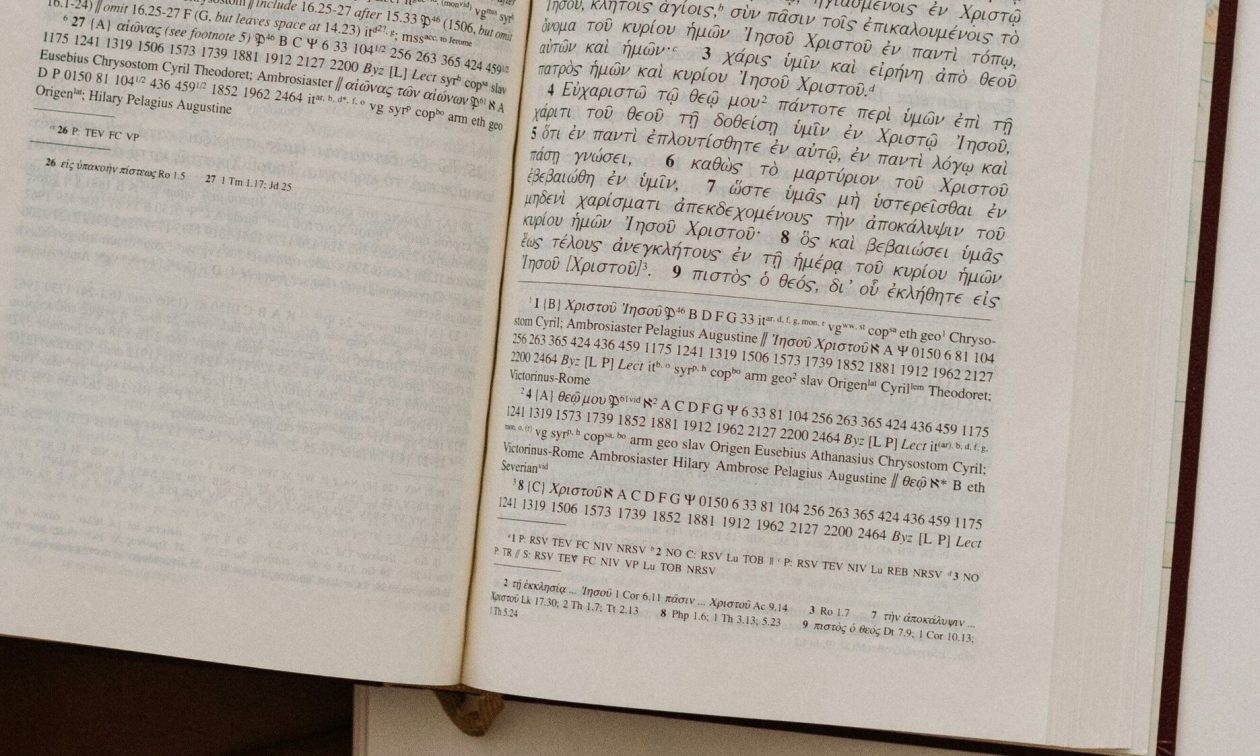 16.1-24) // omit 16.25-27 F (G, but leaves space at 14.23) it d*?, g; mss acc. to Jerome
// include 16.25-27 after 15.33 𝔓46 (1506, but omit
6 27 {A} αἰῶνας (see footnote 5) 𝔓46 B C Ψ 6 33 104 1/2 256 263 365 424 459 1/2
1175 1241 1319 1506 1573 1739 1881 1912 2127 2200 Byz [L] Lect syr h cop sa slav
Eusebius Chrysostom Cyril Theodoret; Ambrosiaster // αἰῶνας τῶν αἰώνων 𝔓61 ℵ A
D P 0150 81 104 1/2 436 459 1/2 1852 1962 2464 it ar, b, d*, f, o vg syr p cop bo arm eth geo
Origen lat; Hilary Pelagius Augustine
a 26 P: TEV FC VP
26 εἰς ὑπακοὴν πίστεως Ro 1.5 27 1 Tm 1.17; Jd 25
Ἰησοῦ, κλητοῖς ἁγίοις, b σὺν πᾶσιν τοῖς ἐπικαλουμένοις τὸ
ὄνομα τοῦ κυρίου ἡμῶν Ἰησοῦ Χριστοῦ ἐν παντὶ τόπῳ,
αὐτῶν καὶ ἡμῶν· c 3 χάρις ὑμῖν καὶ εἰρήνη ἀπὸ θεοῦ
πατρὸς ἡμῶν καὶ κυρίου Ἰησοῦ Χριστοῦ. d
4 Εὐχαριστῶ τῷ θεῷ μου 2 πάντοτε περὶ ὑμῶν ἐπὶ τῇ
χάριτι τοῦ θεοῦ τῇ δοθείσῃ ὑμῖν ἐν Χριστῷ Ἰησοῦ,
5 ὅτι ἐν παντὶ ἐπλουτίσθητε ἐν αὐτῷ, ἐν παντὶ λόγῳ καὶ
πάσῃ γνώσει, 6 καθὼς τὸ μαρτύριον τοῦ Χριστοῦ
ἐβεβαιώθη ἐν ὑμῖν, 7 ὥστε ὑμᾶς μὴ ὑστερεῖσθαι ἐν
μηδενὶ χαρίσματι ἀπεκδεχομένους τὴν ἀποκάλυψιν τοῦ
κυρίου ἡμῶν Ἰησοῦ Χριστοῦ· 8 ὃς καὶ βεβαιώσει ὑμᾶς
ἕως τέλους ἀνεγκλήτους ἐν τῇ ἡμέρᾳ τοῦ κυρίου ἡμῶν
Ἰησοῦ [Χριστοῦ] 3. 9 πιστὸς ὁ θεός, δι’ οὗ ἐκλήθητε εἰς
1 1 {B} Χριστοῦ Ἰησοῦ 𝔓46 B D F G 33 it ar, d, f, g, mon, r vg ww, st cop sa eth geo 1 Chryso-
stom Cyril; Ambrosiaster Pelagius Augustine // Ἰησοῦ Χριστοῦ ℵ A Ψ 0150 6 81 104
256 263 365 424 436 459 1175 1241 1319 1506 1573 1739 1852 1881 1912 1962 2127
2200 2464 Byz [L P] Lect it b, o syr p, h cop bo arm geo 2 slav Origen lat Cyril lem Theodoret;
Victorinus-Rome
2 4 {A} θεῷ μου 𝔓61vid ℵ2 A C D F G Ψ 6 33 81 104 256 263 365 424 436 459 1175
1241 1319 1573 1739 1852 1881 1912 1962 2127 2200 2464 Byz [L P] Lect it (ar), b, d, f, g,
mon, o, (r) vg syr p, h cop sa, bo arm geo slav Origen Eusebius Athanasius Chrysostom Cyril;
Victorinus-Rome Ambrosiaster Hilary Ambrose Pelagius Augustine // θεῷ ℵ* B eth
Severian vid
3 8 {C} Χριστοῦ ℵ A C D F G Ψ 0150 6 33 81 104 256 263 365 424 436 459 1175
1241 1319 1506 1573 1739 1852 1881 1912 1962 2127 2200 2464 Byz [L P] Lect
a 1 P: RSV TEV FC NIV NRSV b 2 NO C: RSV Lu TOB // c P: RSV TEV NIV Lu REB NRSV d 3 NO
P: TR // S: RSV TEV FC NIV VP Lu TOB NRSV
2 τῇ ἐκκλησίᾳ ... Ἰησοῦ 1 Cor 6.11 πᾶσιν ... Χριστοῦ Ac 9.14 3 Ro 1.7 7 τὴν ἀποκάλυψιν ...
Χριστοῦ Lk 17.30; 2 Th 1.7; Tt 2.13 8 Php 1.6; 1 Th 3.13; 5.23 9 πιστὸς ὁ θεός Dt 7.9; 1 Cor 10.13;
1 Th 5.24